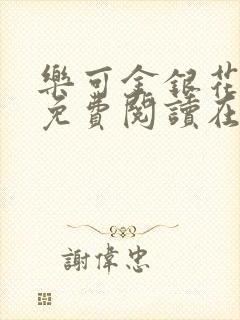 樂可金銀花
免費閱讀在
謝偉忠